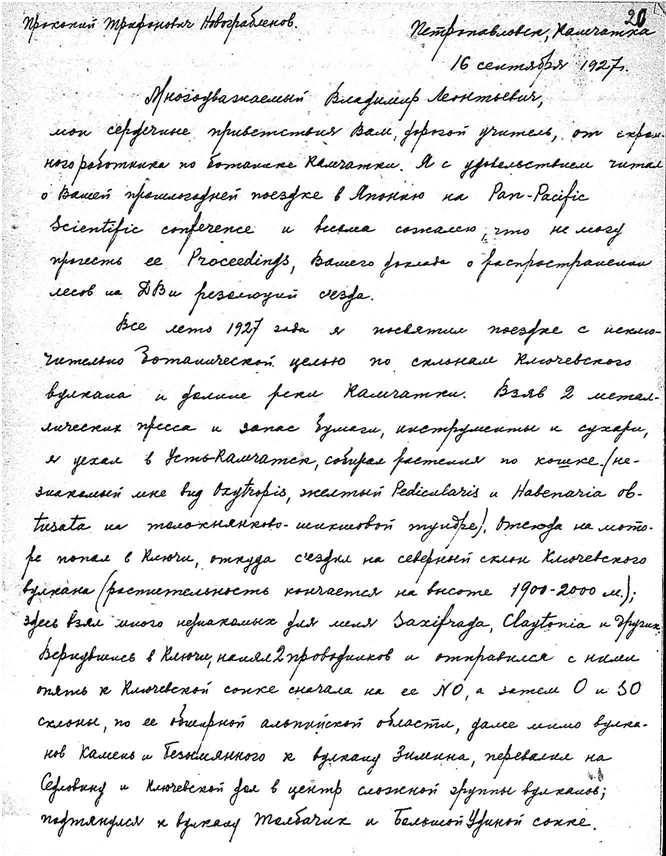 20
Прокопий Трифонович Новограбленов.
Петропавловск, Камчатка
16 сентября 1927 г.
Многоуважаемый Владимир Леонтьевич,
мои сердечные приветствия Вам, дорогой учитель, от скром-
ного работника по ботанике Камчатки. Я с удовольствием читал
о Вашей прошлогодней поездке в Японию на Pan-Pacific
Scientific conference и весьма сожалею, что не могу
прочесть ее Proceedings, Вашего доклада о распространении
лесов на ДВ и резолюций съезда.
Все лето 1927 года я посвятил поездке с исклю-
чительно ботанической целью по склонам Ключевского
вулкана и долине реки Камчатки. Взяв 2 метал-
лических пресса и запас бумаги, инструменты и сухари,
я уехал в Усть-Камчатск, собирал растения по кошке (не-
знакомый мне вид Oxytropis, желтый Pedicularis и Habenaria ob-
tusata на толокнянково-шикшовой тундре). Отсюда на мото-
ре попал в Ключи, откуда съездил на северный склон Ключевского
вулкана (растительность кончается на высоте 1900-2000 м.);
здесь взял много незнакомых для меня Saxifraga, Claytonia и других.
Вернувшись в Ключи, нанял 2 проводников и отправился с ними
опять к Ключевской сопке сначала на ее NO, а затем O и SO
склоны, по ее обширной альпийской области, далее мимо вулка-
нов Камень и Безымянного к вулкану Зимина, перевалил на
Седловину и Ключевской дол в центр сложной группы вулканов;
подтянулся к вулкану Толбачик и Большой Удиной сопке.